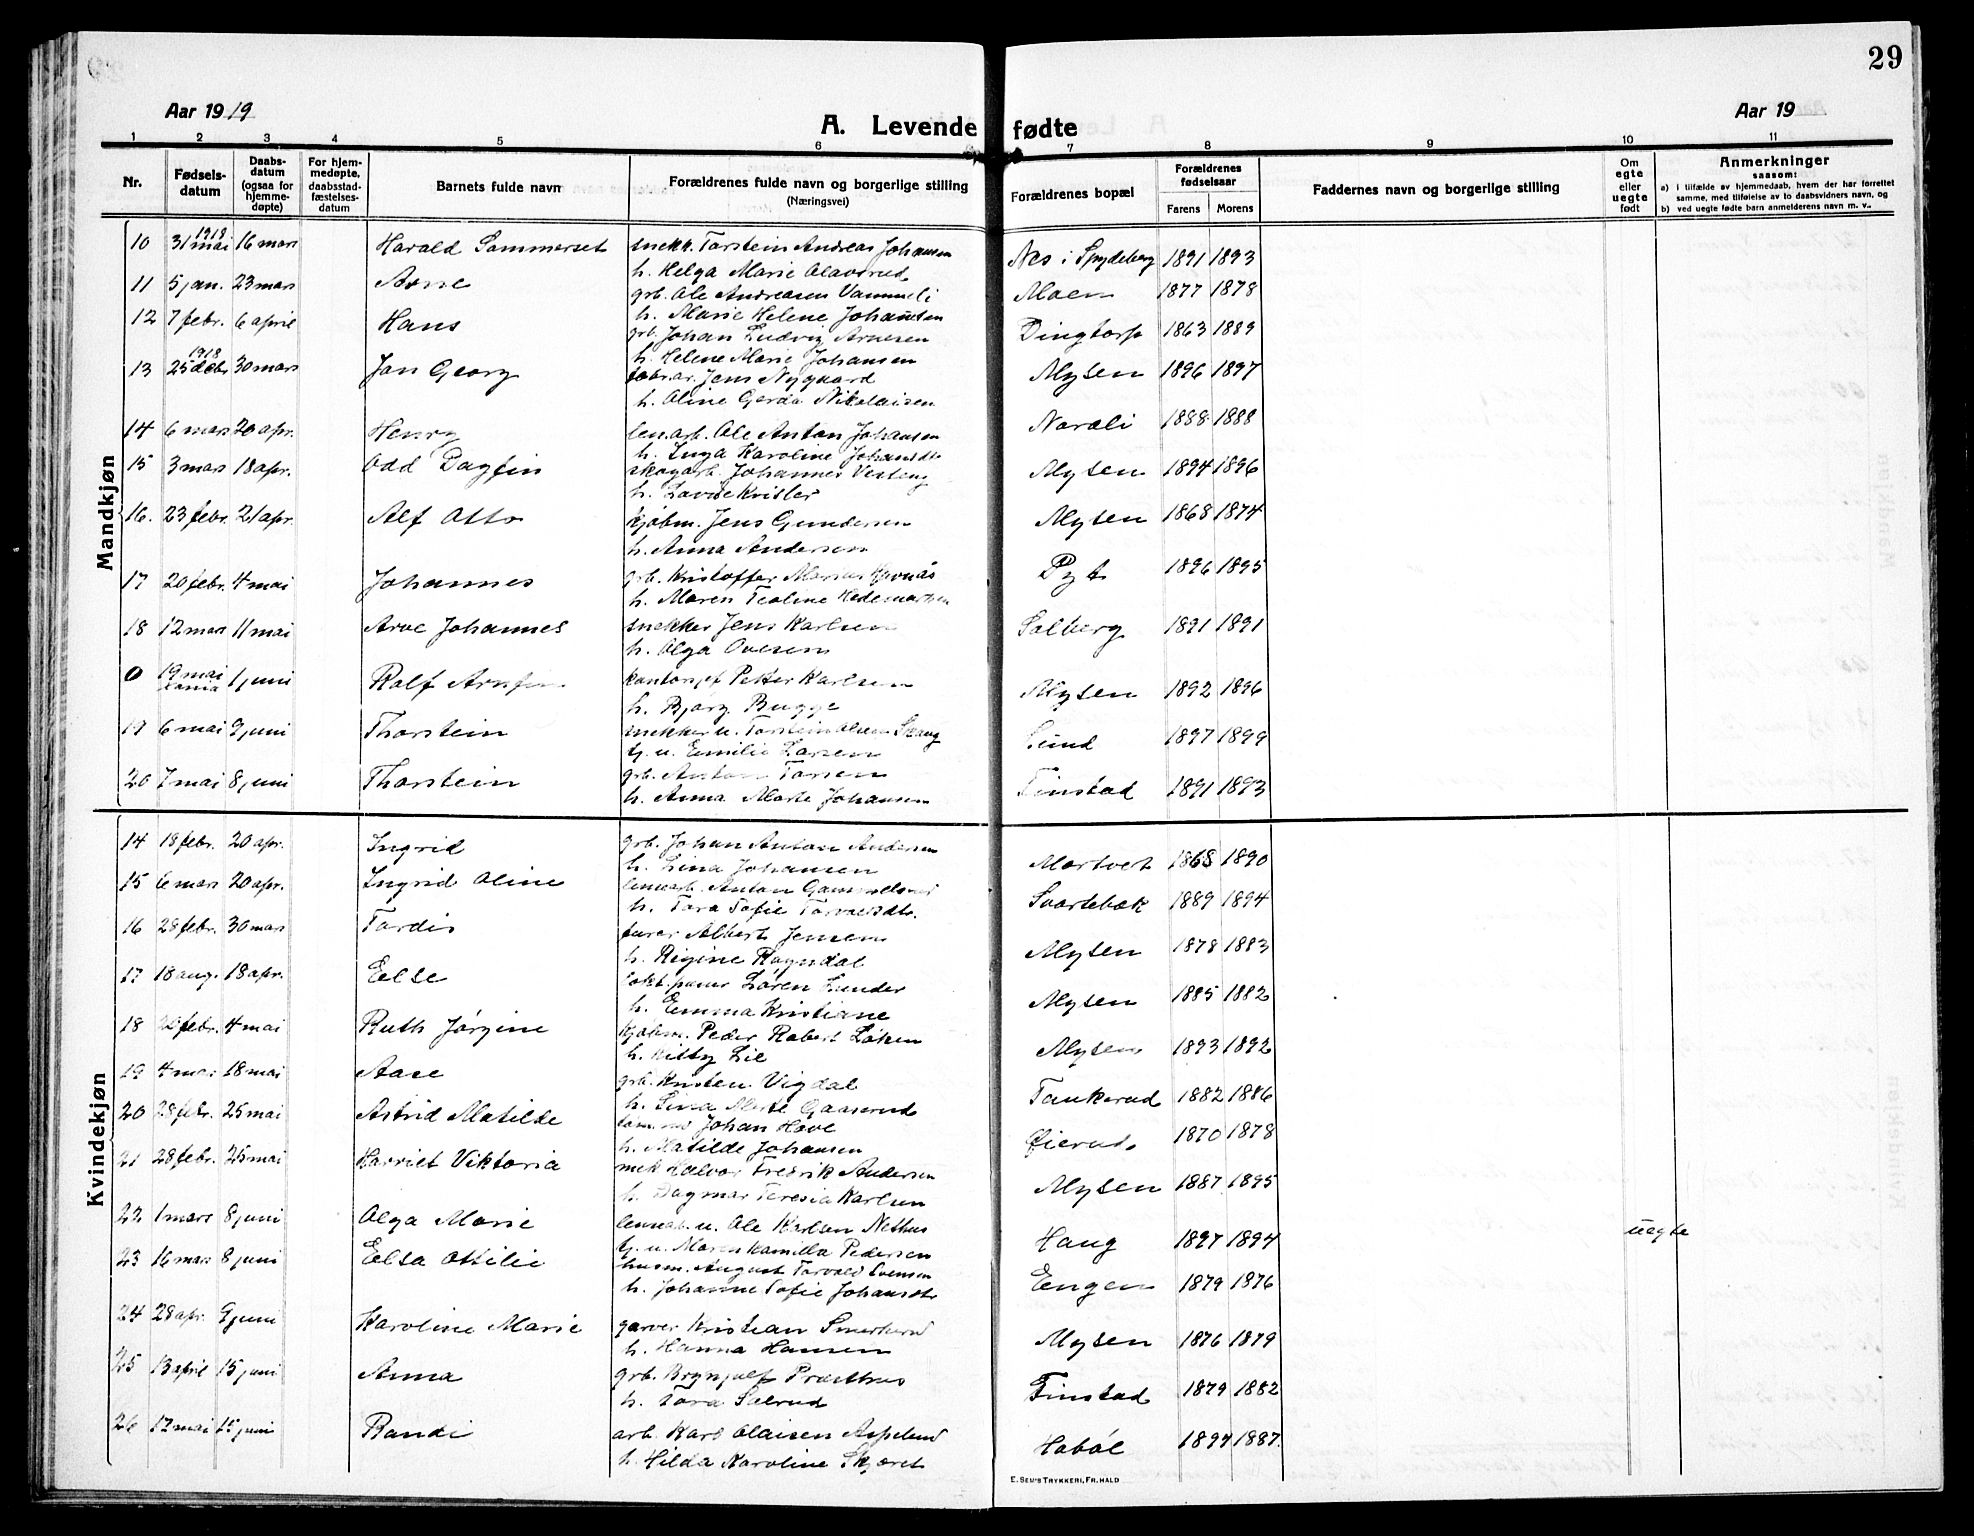 29
Aar 1919
A. Levende fødte
Aar 19
1 2 3 4 5 6 7 8 9 10 11
Nr.
Fødselsdatum
Daabsdatum (ogsaa for hjemmedøpte)
For hjemmedøpte, daabsstadfæstelsesdatum
Barnets fulde navn
Forældrenes fulde navn og borgerlige stilling (Næringsvei)
Forældrenes bopæl
Forældrenes fødselsaar
Farens Morens
Faddernes navn og borgerlige stilling
Om egte eller uegte født
Anmerkninger saasom:
a) i tilfælde av hjemmedaab, hvem der har forrettet samme, med tilføielse av to daabsvidners navn, og
b) ved uegte fødte barn anmelderens navn m. v.
Mandkjøn
10 31 mai 1919 16 mars Harald Sommerset snekk. Torstein Andreas Johansen Nes i Spydeberg 1891 1893
h. Helga Marie Olavsrud
11 5 jan. 23 mars Arne grb. Ole Andreasen Vammeli Moen 1877 1878
h. Marie Helene Johansen
12 7 febr. 6 april Hans grb. Johan Ludvig Arnesen Dingtorp 1863 1889
h. Helene Marie Johansen
13 25 debr 1918 30 mars Jan Georg fabr.ar. Jens Nygaard Mysen 1896 1897
h. Oline Gerda Nikolaisen
14 6 mars 20 apr. Henry lennarb. Ole Anton Johansen Naroli 1888 1888
h. Inga Karoline Johansdtr
15 3 mars 18 apr. Odd Dagfin skogarb. Johannes Vesteng Mysen 1894 1896
h. Lovise Kristler
16. 23 febr. 21 apr. Alf Otto kjøbm. Jens Gundersen Mysen 1868 1874
h. Anna Andersen
17 20 febr. 4 mai Johannes grb. Kristoffer Marius Pyt 1896 1895
h. Maren Teoline
18 12 mars 11 mai Arve Johannes snekker Jens Karlsen Solberg 1891 1891
h. Olga Ovesen
0 19 mai 1 juni Rolf Arnfin kontorsjef Petter Karlsen Mysen 1892 1896
h. Bjorg Bugge
19 6 mai 9 juni Thorstein snekker u. Torstein Olsen Skaug Lund 1897 1899
tj. u. Emilie Larsen
20 7 mai 8 juni Thorstein grb. Anton Torsen Finstad 1891 1893
h. Anna Marte Johansen
Kvindekjøn
14 18 febr. 20 apr. Ingrid grb. Johan Anton Andersen Mortvet 1868 1890
h. Lina Johansen
15 6 mars 20 apr. Ingrid Oline lennarb. Anton Svartebæk 1889 1894
h. Tora Sofie Torvaldsdtr.
16 28 febr. 30 mars Tordis furer Albert Jensen Mysen 1878 1883
h. Regine Rogndal
17 18 aug. 18 apr. Else lokt.puser Søren Lunder Mysen 1885 1882
h. Emma Kristiane
18 20 febr. 4 mai Ruth Jørgine kjøbm. Peder Robert Løken Mysen 1893 1892
h. Kitty Lie
19 4 mai 18 mai Aase grb. Kristen Vigdal Tankerud 1882 1886
h. Lina Marte Gaaserud
20 28 febr. 25 mai Astrid Matilde Johan Hove Øierud 1870 1878
h. Matilde Johansen
21 28 febr. 25 mai Harriet Viktoria mek Halvor Fredrik Andersen Mysen 1887 1895
h. Dagmar Teresia Karlsen
22 1 mars 8 juni Olga Marie lennarb. u. Ole Karlsen Nethus Haug 1897 1894 uegte
tj. u. Maren Kamilla Pedersen
23 16 mars 8 juni Elsa Ottilie husm. August Torvald Svensen Engen 1879 1876
h. Johanne Sofie Johansdtr
24 28 apr. 9 juni Karoline Marie garver Kristian Smerkerud Mysen 1876 1879
h. Hanna Hansen
25 13 april 15 juni Anna grb. Brynjulf Præsthus Finstad 1879 1882
h. Tora Solrud
26 17 mai 15 juni Randi arb. Karl Olaisen Aspelund Hobøl 1897 1887.
h. Hilda Karoline Skjøret
E. SEM'S TRYKKERI, FR.HALD